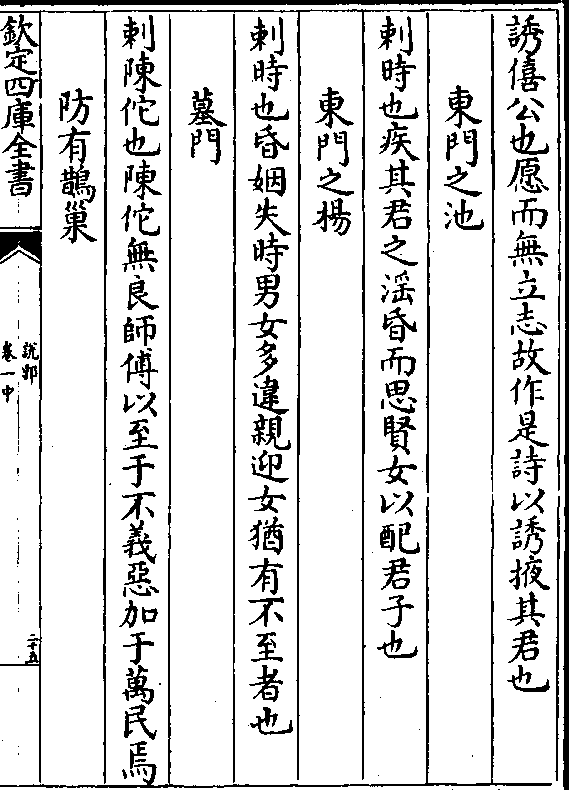 誘僖公也愿而無立志故作是詩以誘掖其君也
東門之池
刺時也疾其君之淫昏而思賢女以配君子也
東門之楊
刺時也昏姻失時男女多違親迎女猶有不至者也
墓門
刺陳佗也陳佗無良師傅以至于不義惡加于萬民焉
防有鵲巢
欽定四庫全書
說郛
卷一中
二十五